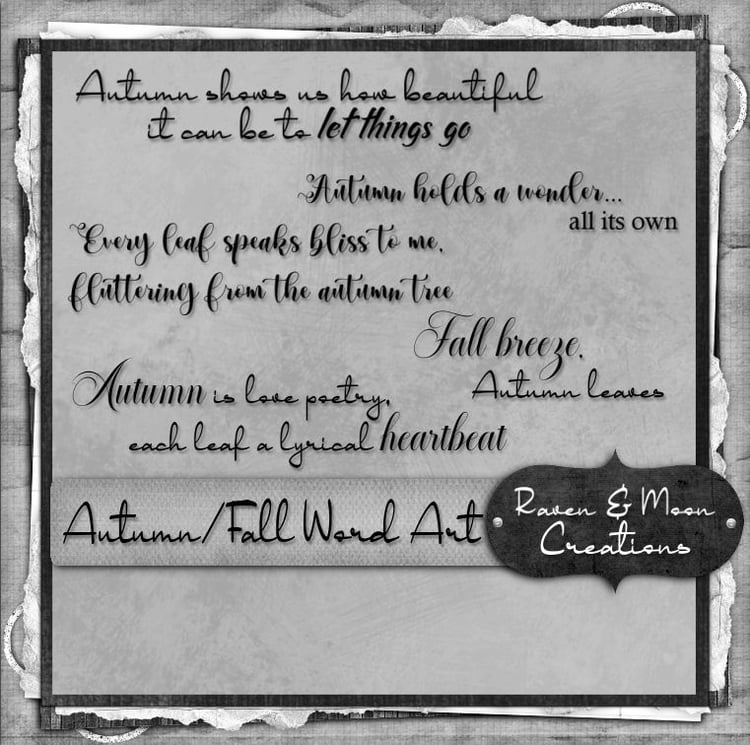 Autumn shows us how beautiful
it can be to let things go
Autumn holds a wonder...
all its own
Every leaf speaks bliss to me,
fluttering from the autumn tree
Fall breeze,
Autumn leaves
Autumn is love poetry,
each leaf a lyrical heartbeat
Autumn/Fall Word Art
Raven & Moon
Creations